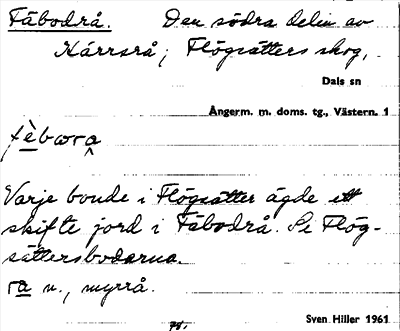 Fäbodrå. Den södra delen av
Kärrsrå, Flögsätters skog,
Dals sn
Ångerm. m. doms. tg., Västern. 1
Varje bonde i Flögsätter ägde ett
skifte jord i Fäbodrå. Se Flög-
sättersbodarna.
ra n., myrrå.
Sven Hiller 1961